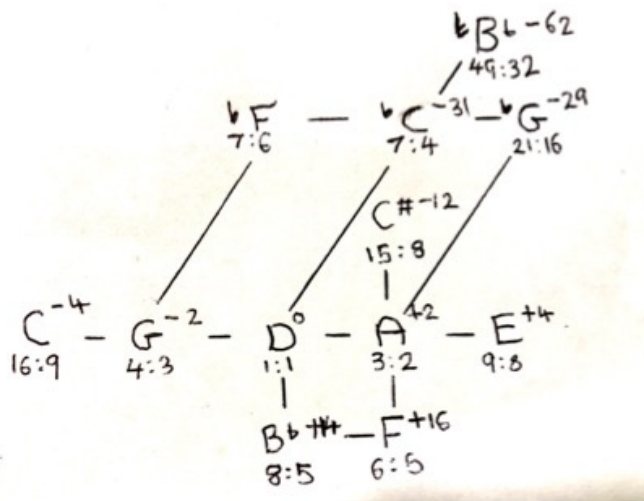 ŧB♭-62
49:32
♭F — ♭C-31 — ♭G-29
7:6 7:4 21:16
C#-12
15:8
C-4 — G-2 — D0 — A+2 — E+4
16:9 4:3 1:1 3:2 9:8
B♭ — F+16
8:5 6:5